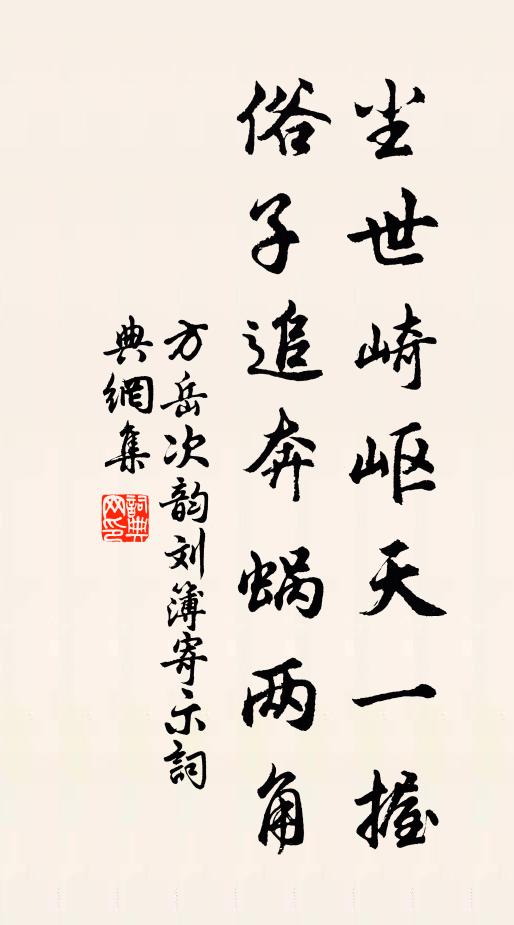 尘世崎岖天一握
俗子追奔蜗两角
方岳次韵刘簿寄示詞
典網集
詞典网印